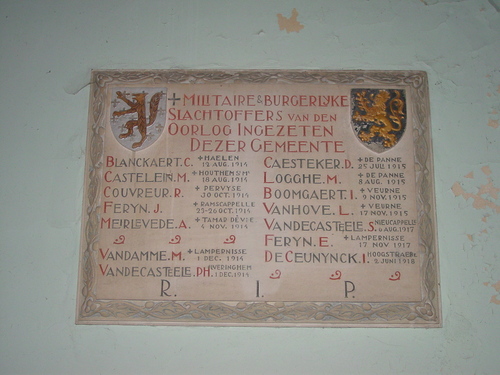 + MILITAIRE & BURGERLIJKE
SLACHTOFFERS VAN DEN
OORLOG INGEZETEN
DEZER GEMEENTE
BLANCKAERT. C. + HAELEN 12 AUG. 1914
CASTELEIN. M. + HOUTHEM 18 AUG. 1914
COUVREUR. R. + PERVYSE 20 OCT. 1914
FERYN. J. + RAMSCAPPELLE 27-28 OCT. 1914
MEIRLEVEDE. A. 4 NOV. 1914
VANDAMME. M. + LAMPERNISSE 1 DEC. 1914
VANDECASTEELE. PH. 1 DEC. 1914
CAESTEKER. D. + DE PANNE 25 JULI 1915
LOGGHE. M. + DE PANNE 8 AUG. 1915
BOOMGAERT. I. + VEURNE 9 NOV. 1915
VANHOVE. L. + VEURNE 17 NOV. 1915
VANDECASTEELE. S. NIEUCAPPELLE 6 AUG. 1917
FERYN. E. + LAMPERNISSE 17 NOV 1917
DE CEUNYNCK. I. 2 JUNI 1918
R. I. P.